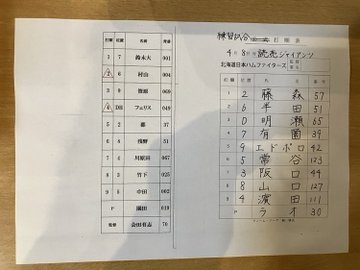 打順 位置 名前 背番
1 7 鈴木大 001
2 6 村山 004
3 9 笹原 069
4 DH フェリス 049
5 2 都 37
6 4 浅野 51
7 5 川原田 067
8 3 竹下 025
9 8 中田 002
P 園田 019
監督 会田有志 70
練習試合 打順表
4月8日 読売ジャイアンツ
北海道日本ハムファイターズ
打順 位置 氏名
1 2 藤森 57
2 6 半田 51
3 D 明瀬 65
4 7 有薗 39
5 9 エドポロ 42
6 5 常谷 123
7 3 阪口 44
8 8 山口 127
9 4 濵田 111
P ラオ 30